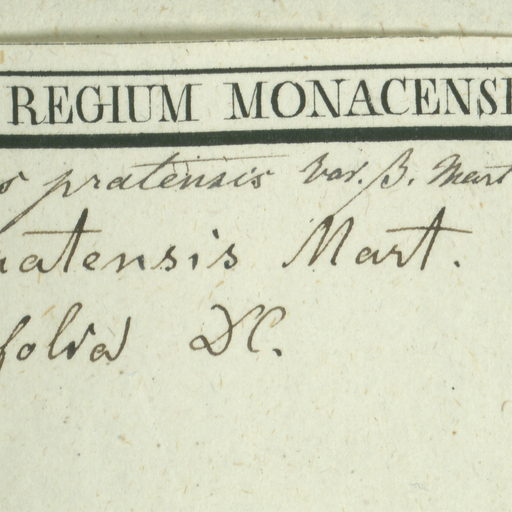 REGIUM MONACENS
s pratensis Var. β. Mart
ratensis Mart.
folia DC.